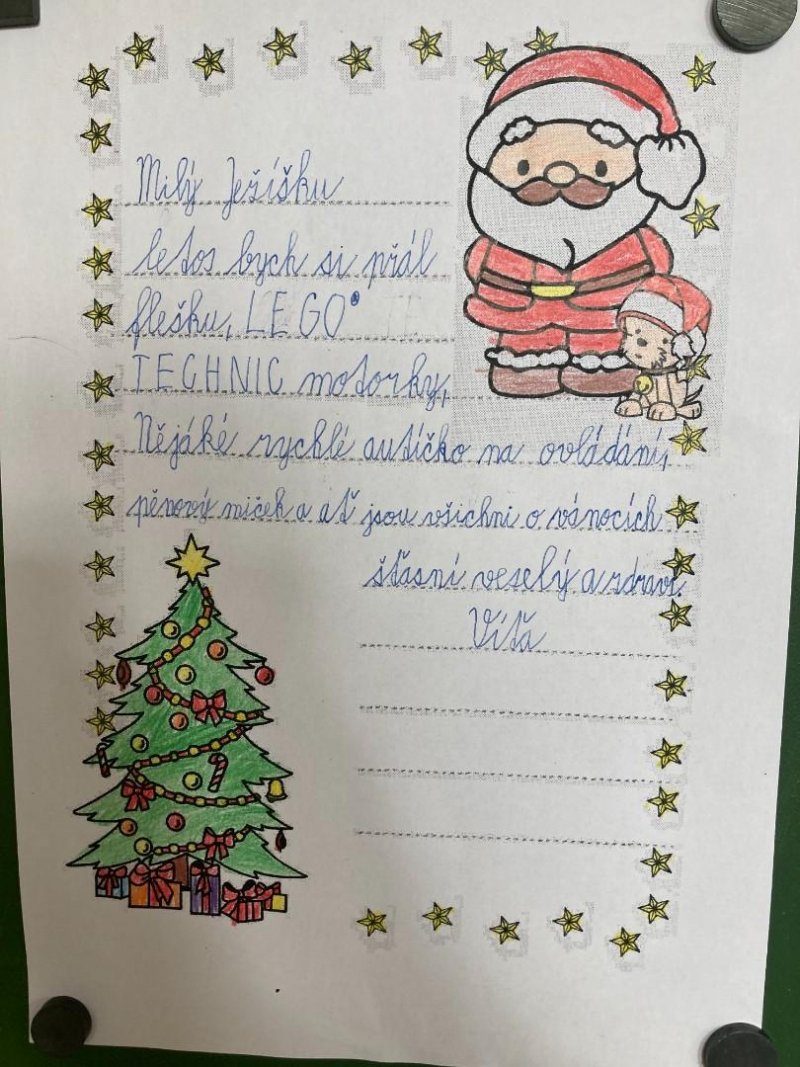 Milý Ježíšku
letos bych si přál
flešku, LEGO®
TECHNIC motorky,
Nějáké rychlé autíčko na ovládání,
pěnový míček a ať jsou všichni o vánocích
šťasní veselý a zdraví.
Víťa